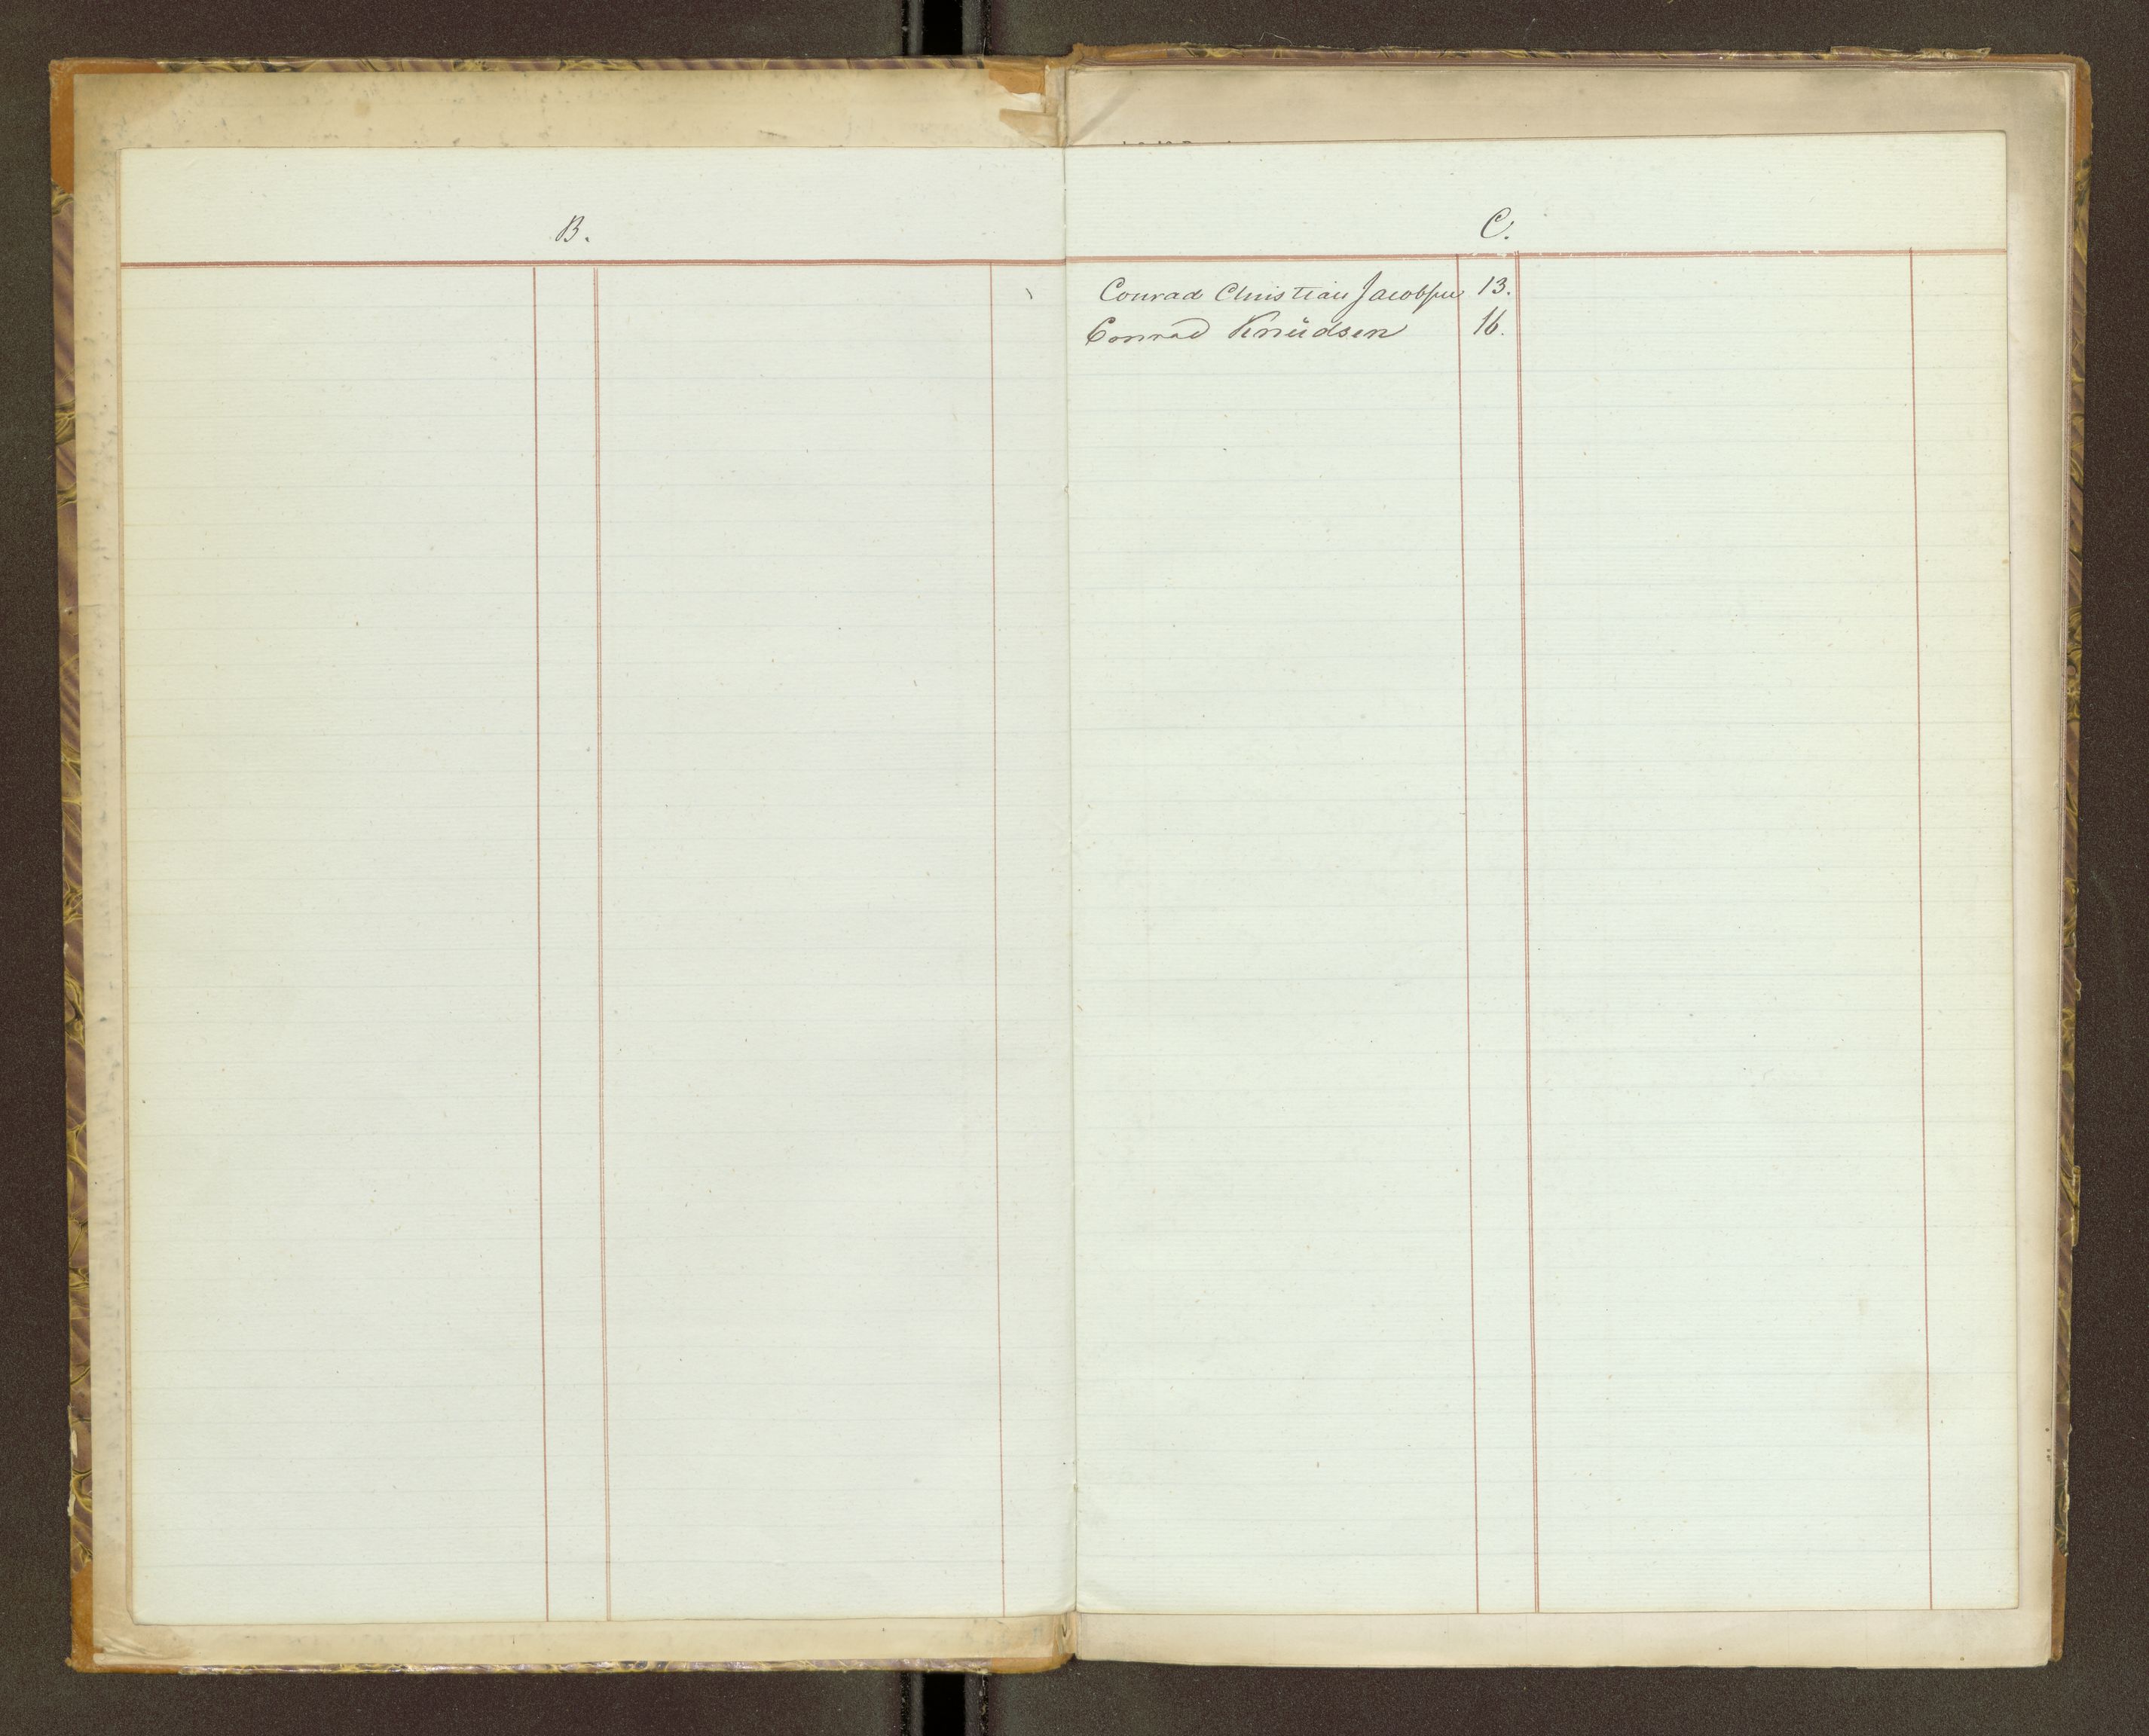 B.
C.
Conrad Christian Jacobsen 13.
Conrad Knudsen 16.